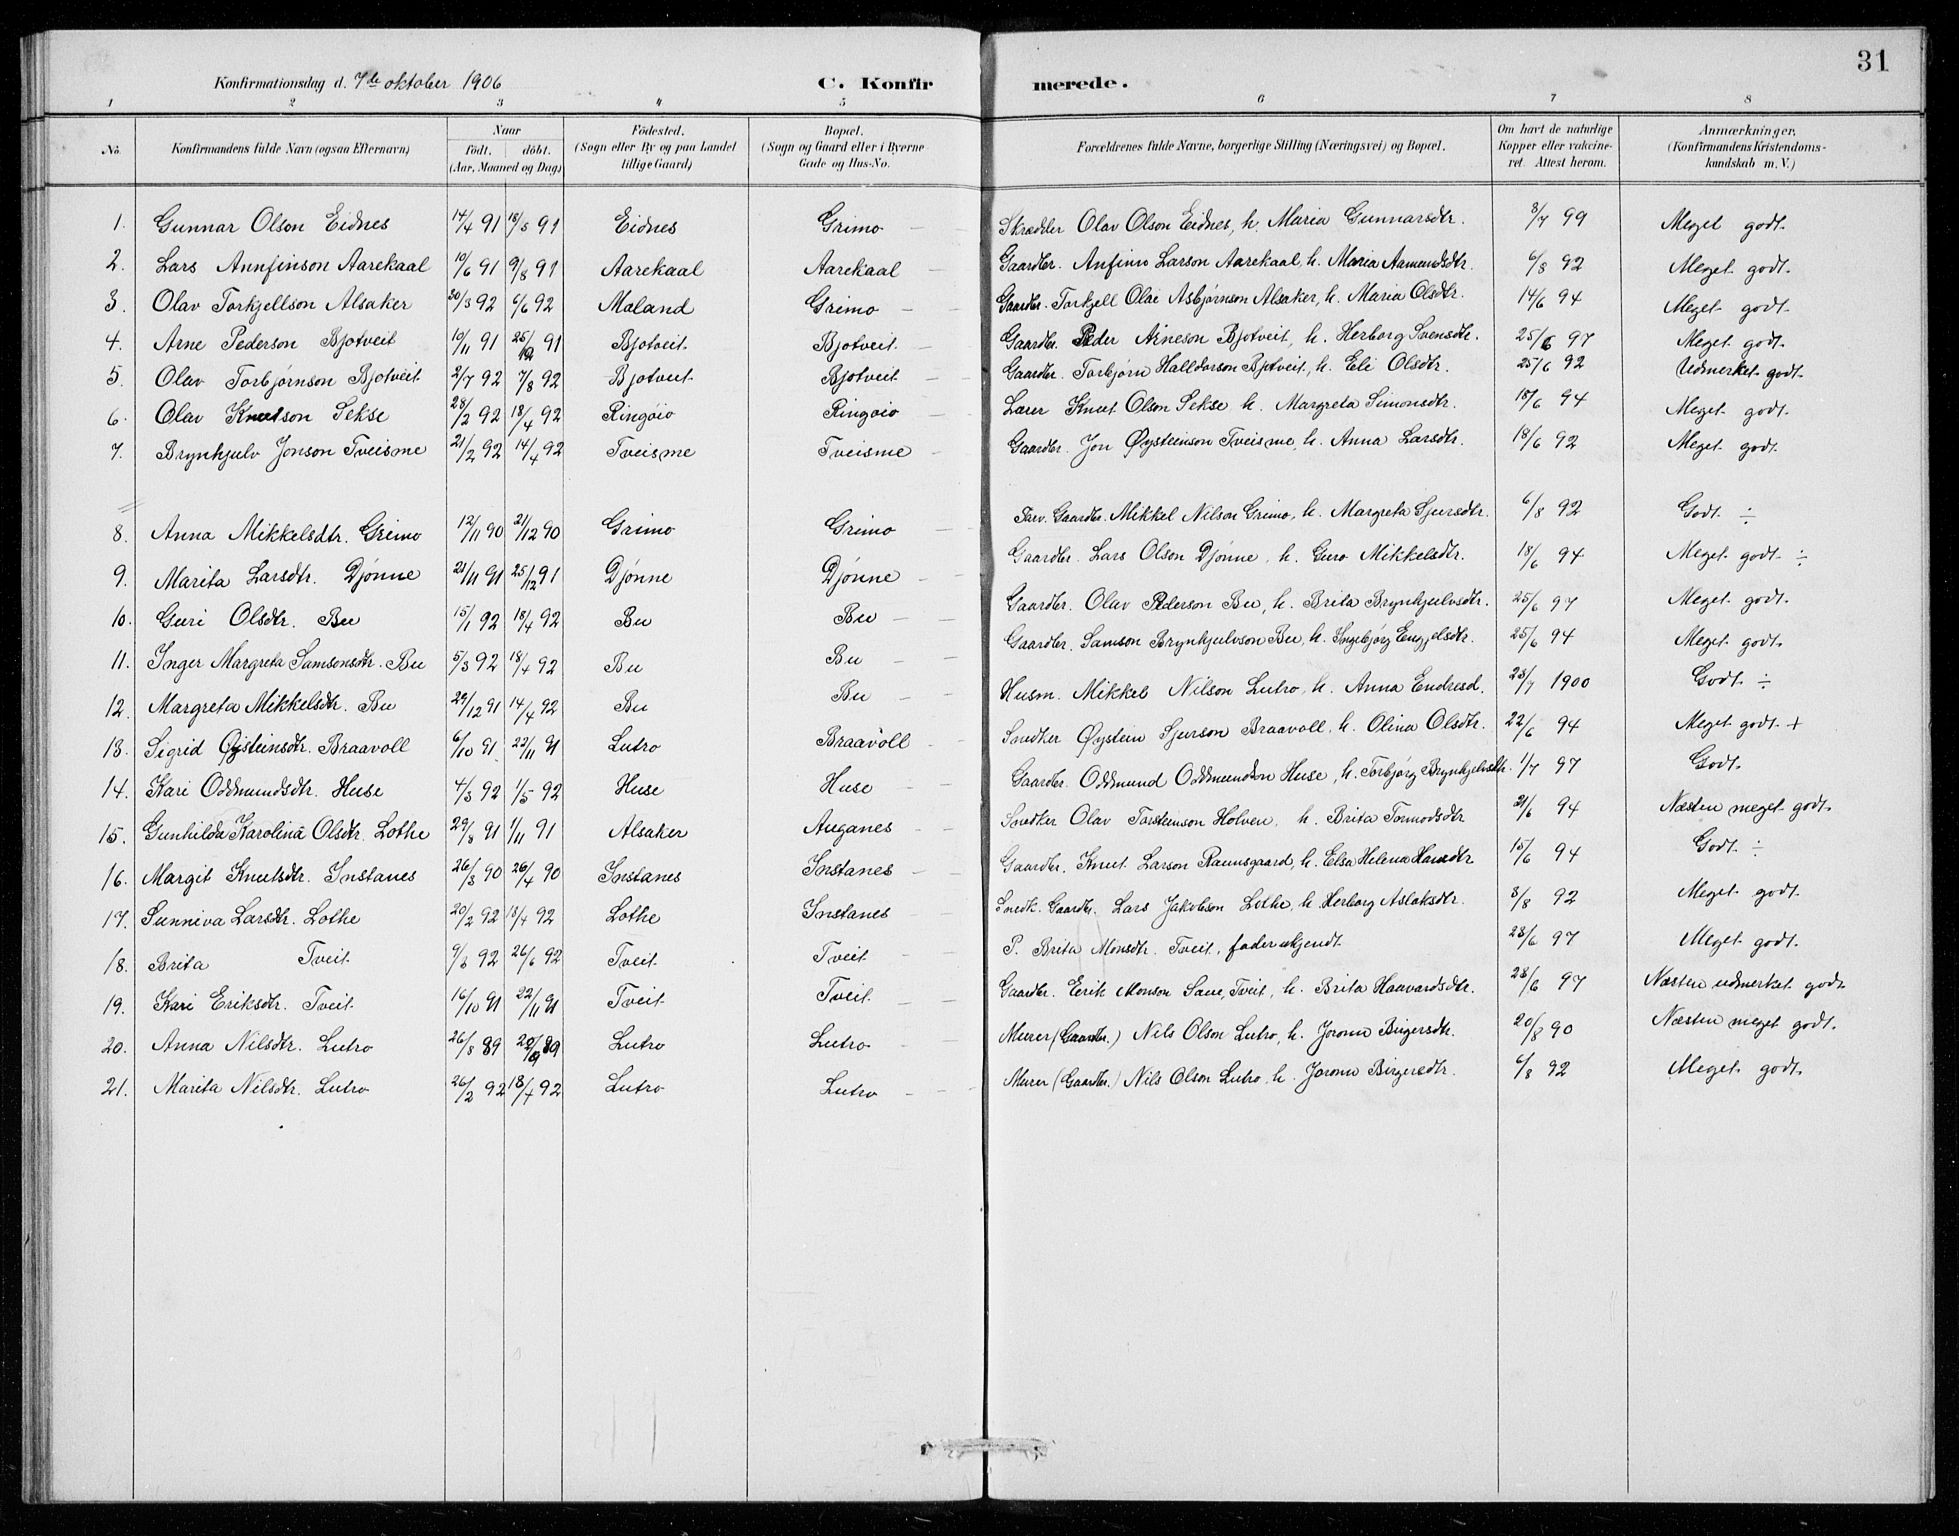 31
Konfirmationsdag d. 7de oktober 1906 C. Konfir merede.
1 2 3 4 5 6 7 8
No. Konfirmandens fulde Navn (ogsaa Efternavn) Naar født. døbt. (Aar, Maaned og Dag) Födested. (Sogn eller By og paa Landet tillige Gaard) Bopæl. (Sogn og Gaard eller i Byerne Gade og Hus-No. Forældrenes fulde Navne, borgerlige Stilling (Næringsvei) og Bopæl. Om havt de naturlige Kopper eller vakcineret. Attest herom. Anmærkninger. (Konfirmandens Kristendomskundskab m. V.)
1. Gunnar Olson Eidnes 14/4 91 18/5 91 Eidnes Grimo Skrædder Olav Olson Eidnes, h. Maria Gunnarsdtr. 3/7 99 Meget godt.
2. Lars Annfinson Aarekaal 10/6 91 9/8 91 Aarekaal Aarekaal Gaardbr. Anfinn Larson Aarekaal, h. Maria Aamundsdtr. 6/8 92 Meget godt.
3. Olav Torkjellson Alsaker 30/3 92 6/6 92 Maland Grimo Gaardbr. Torkjell Olai Asbjørnson Alsaker, h. Maria Olsdtr. 14/6 94 Meget godt.
4. Arne Pederson Bjotveit 10/11 91 25/12 91 Bjotveit Bjotveit Gaardbr. Peder Arneson Bjotveit, h. Herborg Svensdtr. 25/6 97 Meget godt.
5. Olav Torbjørnson Bjotveit 2/7 92 7/8 92 Bjotveit Bjotveit Gaardbr. Torbjørn Halldorson Bjotveit, h. Eli Olsdtr. 25/6 92 Udmerket godt.
6. Olav Knutson Sekse 28/2 92 18/4 92 Ringøio Ringøio Lærer Knut Olson Sekse h. Margreta Simonsdtr. 18/6 94 Meget godt.
7. Brynhjulv Jonson Tveisme 21/2 92 14/4 92 Tveisme Tveisme Gaardbr. Jon Øysteinson Tveisme, h. Anna Larsdtr. 18/6 92 Meget godt.
8. Anna Mikkelsdtr. Grimo 12/11 90 21/12 90 Grimo Grimo Forv. Gaardbr. Mikkel Nilson Grimo, h. Margreta Sjursdtr. 6/8 92 Godt ÷
9. Marita Larsdtr. Djønne 21/11 91 25/12 91 Djønne Djønne Gaardbr. Lars Olson Djønne, h. Guro Mikkelsdtr. 18/6 94 Meget godt ÷
10. Guri Olsdtr. Bu 15/1 92 18/4 92 Bu Bu Gaardbr. Olav Pederson Bu, h. Brita Brynhjulvsdtr. 25/6 97 Meget godt.
11. Inger Margreta Samsonsdtr. Bu 5/3 92 18/4 92 Bu Bu Gaardbr. Samson Brynhjulvson Bu, h. Ingebjørg Engjelsdtr. 25/6 94 Meget godt.
12. Margreta Mikkelsdtr. Bu 29/12 91 14/4 92 Bu Bu Husm. Mikkel Nilson Lutro, h. Anna Endresd. 23/7 1900 Godt ÷
13. Sigrid Øysteinsdtr. Braavoll 6/10 91. 22/11 91 Lutro Braavoll Snedker Øystein Sjurson Braavoll, h. Olina Olsdtr. 22/6 94 Meget godt +
14. Kari Oddmundsdtr. Huse 4/3 92 1/5 92 Huse Huse Gaardbr. Oddmund Oddmundson Huse, h. Torbjørg Brynhjulvsdtr. 1/7 97 Godt.
15. Gunhilda Karolina Olsdtr. Lothe 29/8 91 1/11 91 Alsaker Auganes Snedker Olav Torsteinson Holven, h. Brita Tormodsdtr 21/6 94 Næsten meget godt.
16. Margit Knutsdtr. Instanes 26/3 90 26/4 90 Instanes Instanes Gaardbr. Knut Larson Raunsgaard, h. Elsa Helena Hansdtr 15/6 94 Godt ÷
17. Sunniva Larsdtr. Lothe 20/2 92 18/4 92 Lothe Instanes Snedk. Gaardbr. Lars Jakobson Lothe, h. Herborg Aslaksdtr. 8/8 92 Meget godt.
18. Brita Tveit 9/3 92 26/6 92 Tveit Tveit P. Brita Monsdtr. Tveit, fader ukjendt. 23/6 97 Meget godt.
19. Kari Eriksdtr. Tveit 16/10 91 22/11 91 Tveit Tveit Gaardbr. Erik Monson Saue, Tveit, h. Brita Haavardsdtr. 23/6 97 Næsten udmerket godt
20. Anna Nilsdtr. Lutro 26/8 89 29/9 89 Lutro Lutro Murer (Gaardbr.) Nils Olson Lutro, h. Joronn Birgersdtr. 20/8 90 Næsten meget godt.
21. Marita Nilsdtr. Lutro 26/2 92 18/4 92 Lutro Lutro Murer (Gaardbr.) Nils Olson Lutro h. Joronn Birgersdtr. 6/8 92 Meget godt.